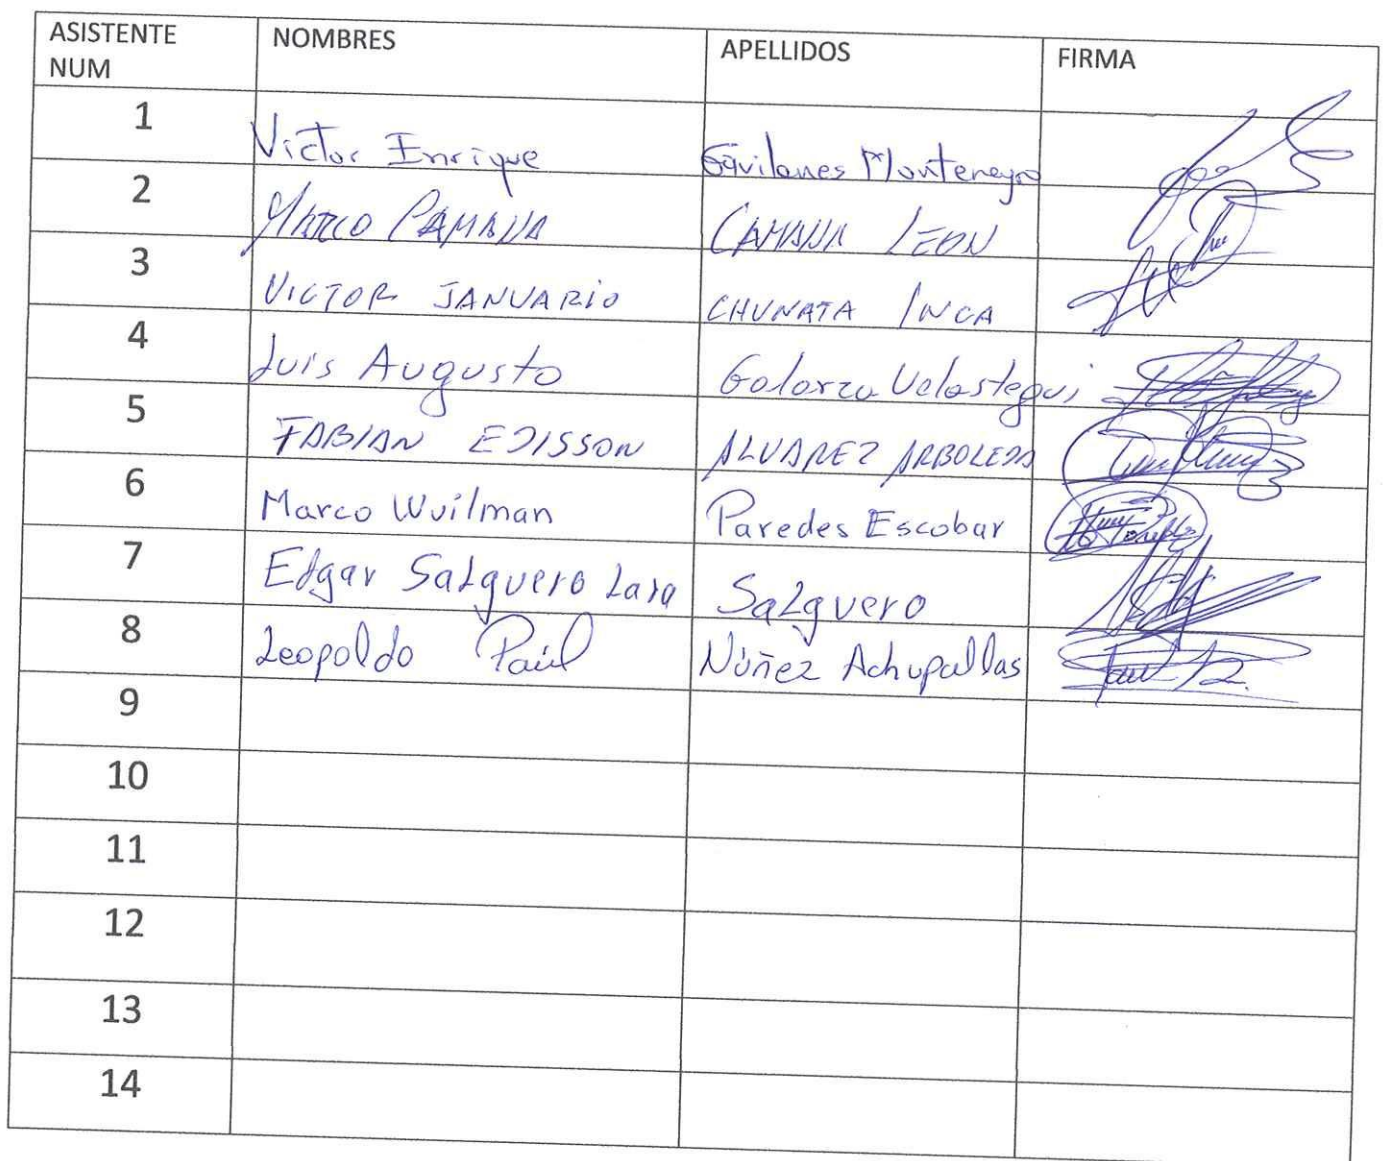 ASISTENTE NUM NOMBRES APELLIDOS FIRMA
1 Victor Enrique Gavilanes Montenegro
2 MARCO CAMANA CAMANA LEON
3 VICTOR JANUARIO CHUNATA INCA
4 Luis Augusto Galarza Velastegui
5 FABIAN EDISSON ALVAREZ ARBOLEDA
6 Marco Wuilman Paredes Escobar
7 Edgar Salguero Lara Salguero
8 Leopoldo Paúl Núñez Achupallas
9
10
11
12
13
14